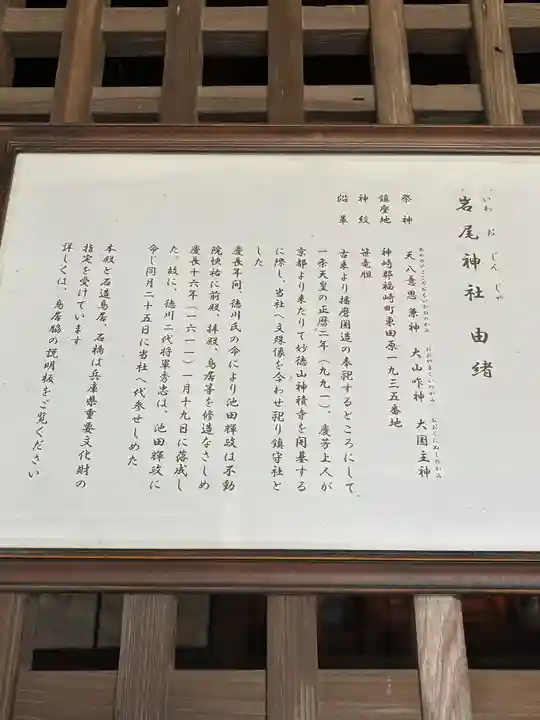 いわ お じん じゃ
岩尾神社 由緒
あめのやごころおもいかねのかみ おおやまくいのかみ おおくにぬしのかみ
祭神 天八意思兼神 大山咋神 大国主神
鎮座地 神崎郡福崎町東田原一九三五番地
神紋 笹竜胆
沿革 古来より播磨国造の奉祀するところにして
一条天皇の正暦二年(九九一)、慶芳上人が
京都より来たりて妙徳山神積寺を開基する
に際し、当社へ文殊像を合わせ祀り鎮守社と
した
慶長年間、徳川氏の令により池田輝政は不動
院快祐に前殿、拝殿、鳥居等を修造なさしめ
慶長十六年(一六一一)一月十九日に落成し
た。故に、徳川二代将軍秀忠は、池田輝政に
令じ同月二十五日に当社へ代参せしめた
本殿と石造鳥居、石橋は兵庫県重要文化財の
指定を受けています
詳しくは、鳥居脇の説明板をご覧ください